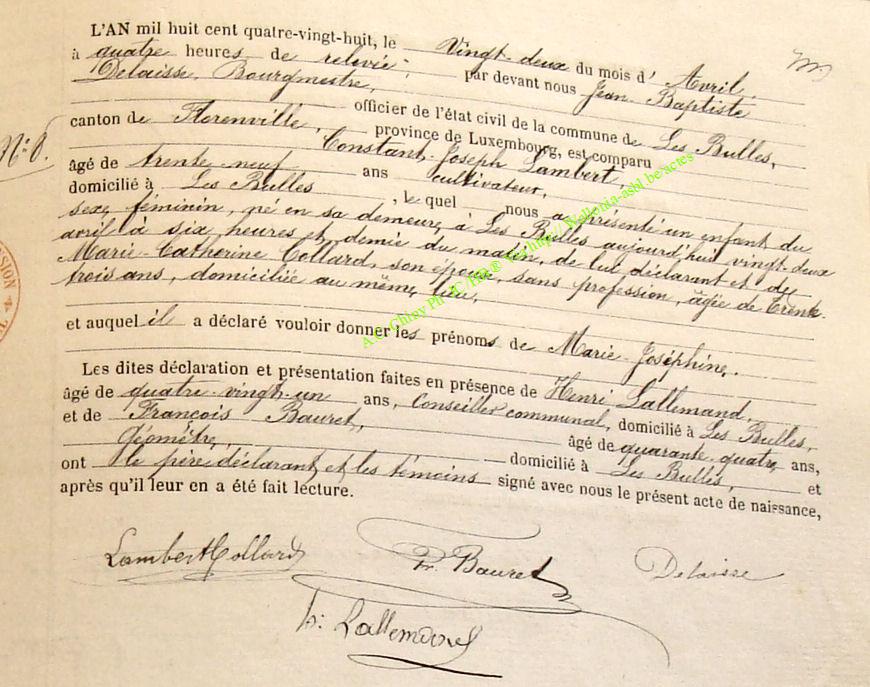 L'AN mil huit cent quatre-vingt-huit, le Vingt-deux du mois d'Avril,
à quatre heures de relevée; par devant nous Jean-Baptiste
Delaisse, Bourgmestre,
officier de l'état civil de la commune de Les Bulles,
canton de Florenville, province de Luxembourg, est comparu
Constant-Joseph Lambert,
âgé de trente-neuf ans cultivateur,
domicilié à Les Bulles, le quel nous a présenté un enfant du
sexe féminin, né en sa demeure, à Les Bulles aujourd'hui vingt-deux
avril à six heures et demie du matin, de lui déclarant et de
Marie-Catherine Collard, son épouse, sans profession, âgée de trente
trois ans, domiciliée au même lieu,
et auquel il a déclaré vouloir donner les prénoms de Marie-Joséphine.
Les dites déclaration et présentation faites en présence de Henri Lallemand,
âgé de quatre-vingt-un ans, Conseiller communal, domicilié à Les Bulles,
et de François Bauret, âgé de quarante-quatre ans,
Géomètre, domicilié à Les Bulles, et
ont le père déclarant et les témoins signé avec nous le présent acte de naissance,
après qu'il leur en a été fait lecture.
N° 8.
Lambert Collard
Fr. Bauret
Delaisse
h: Lallemand